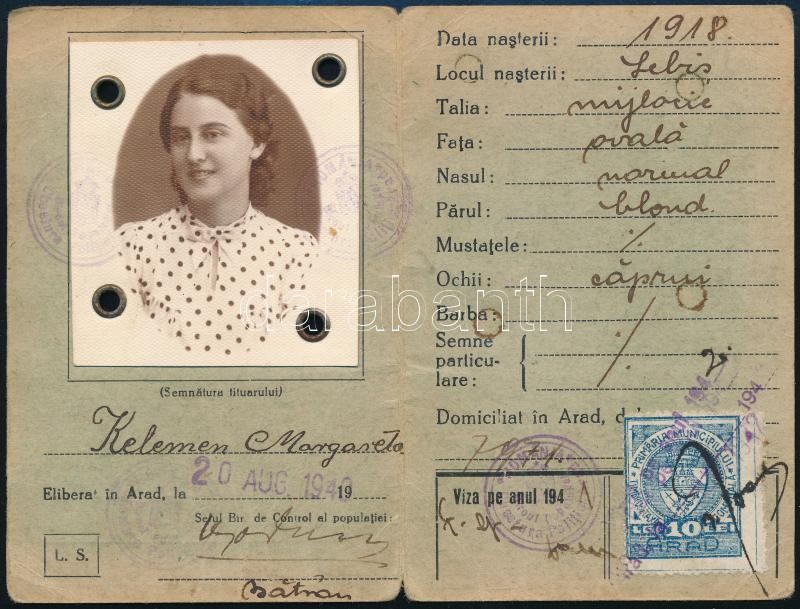 (Semnătura tituarului)
Kelemen Margareta
Eliberat în Arad, la 20 AUG. 1940 19
Șeful Bir. de Control al populației:
L. S.
Bătrân
Data nașterii: 1918.
Locul nașterii: Sebiș
Talia: mijlocie
Fața: ovală
Nasul: normal
Părul: blond
Mustațele: ./.
Ochii: căprui
Barba:
Semne
particu-
lare: ./.
Domiciliat în Arad,
Viza pe anul 194 1
PRIMĂRIA MUNICIPIULUI
LEI 10 LEI
ARAD
darabanth